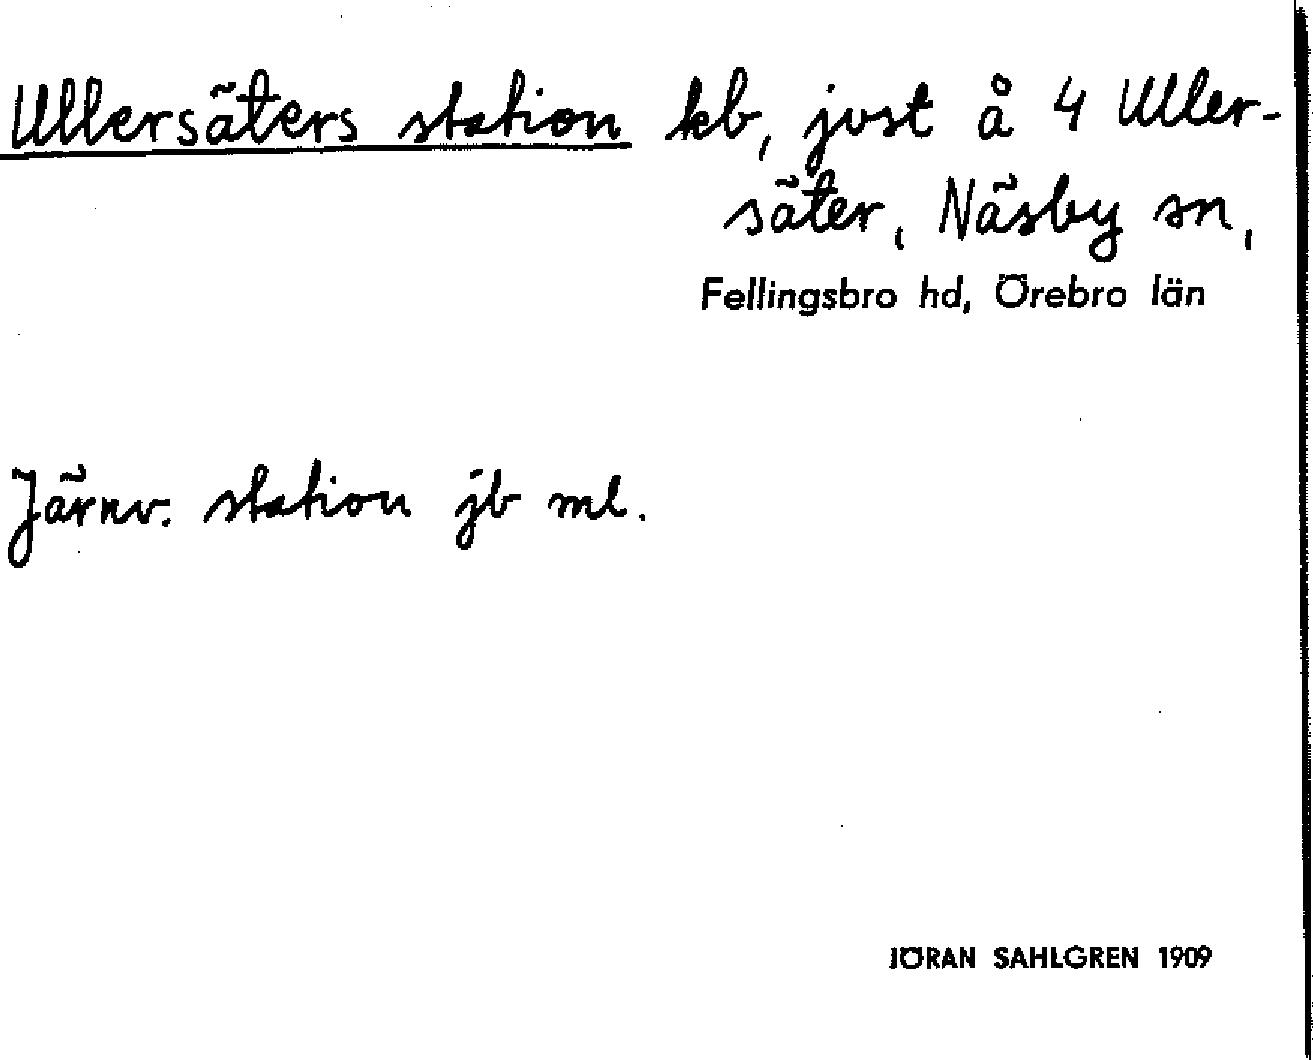 Ullersäters station kb, just å 4 Uller-
säter, Näsby sn,
Fellingsbro hd, Örebro län
Järnv. station jb ml.
JÖRAN SAHLGREN 1909